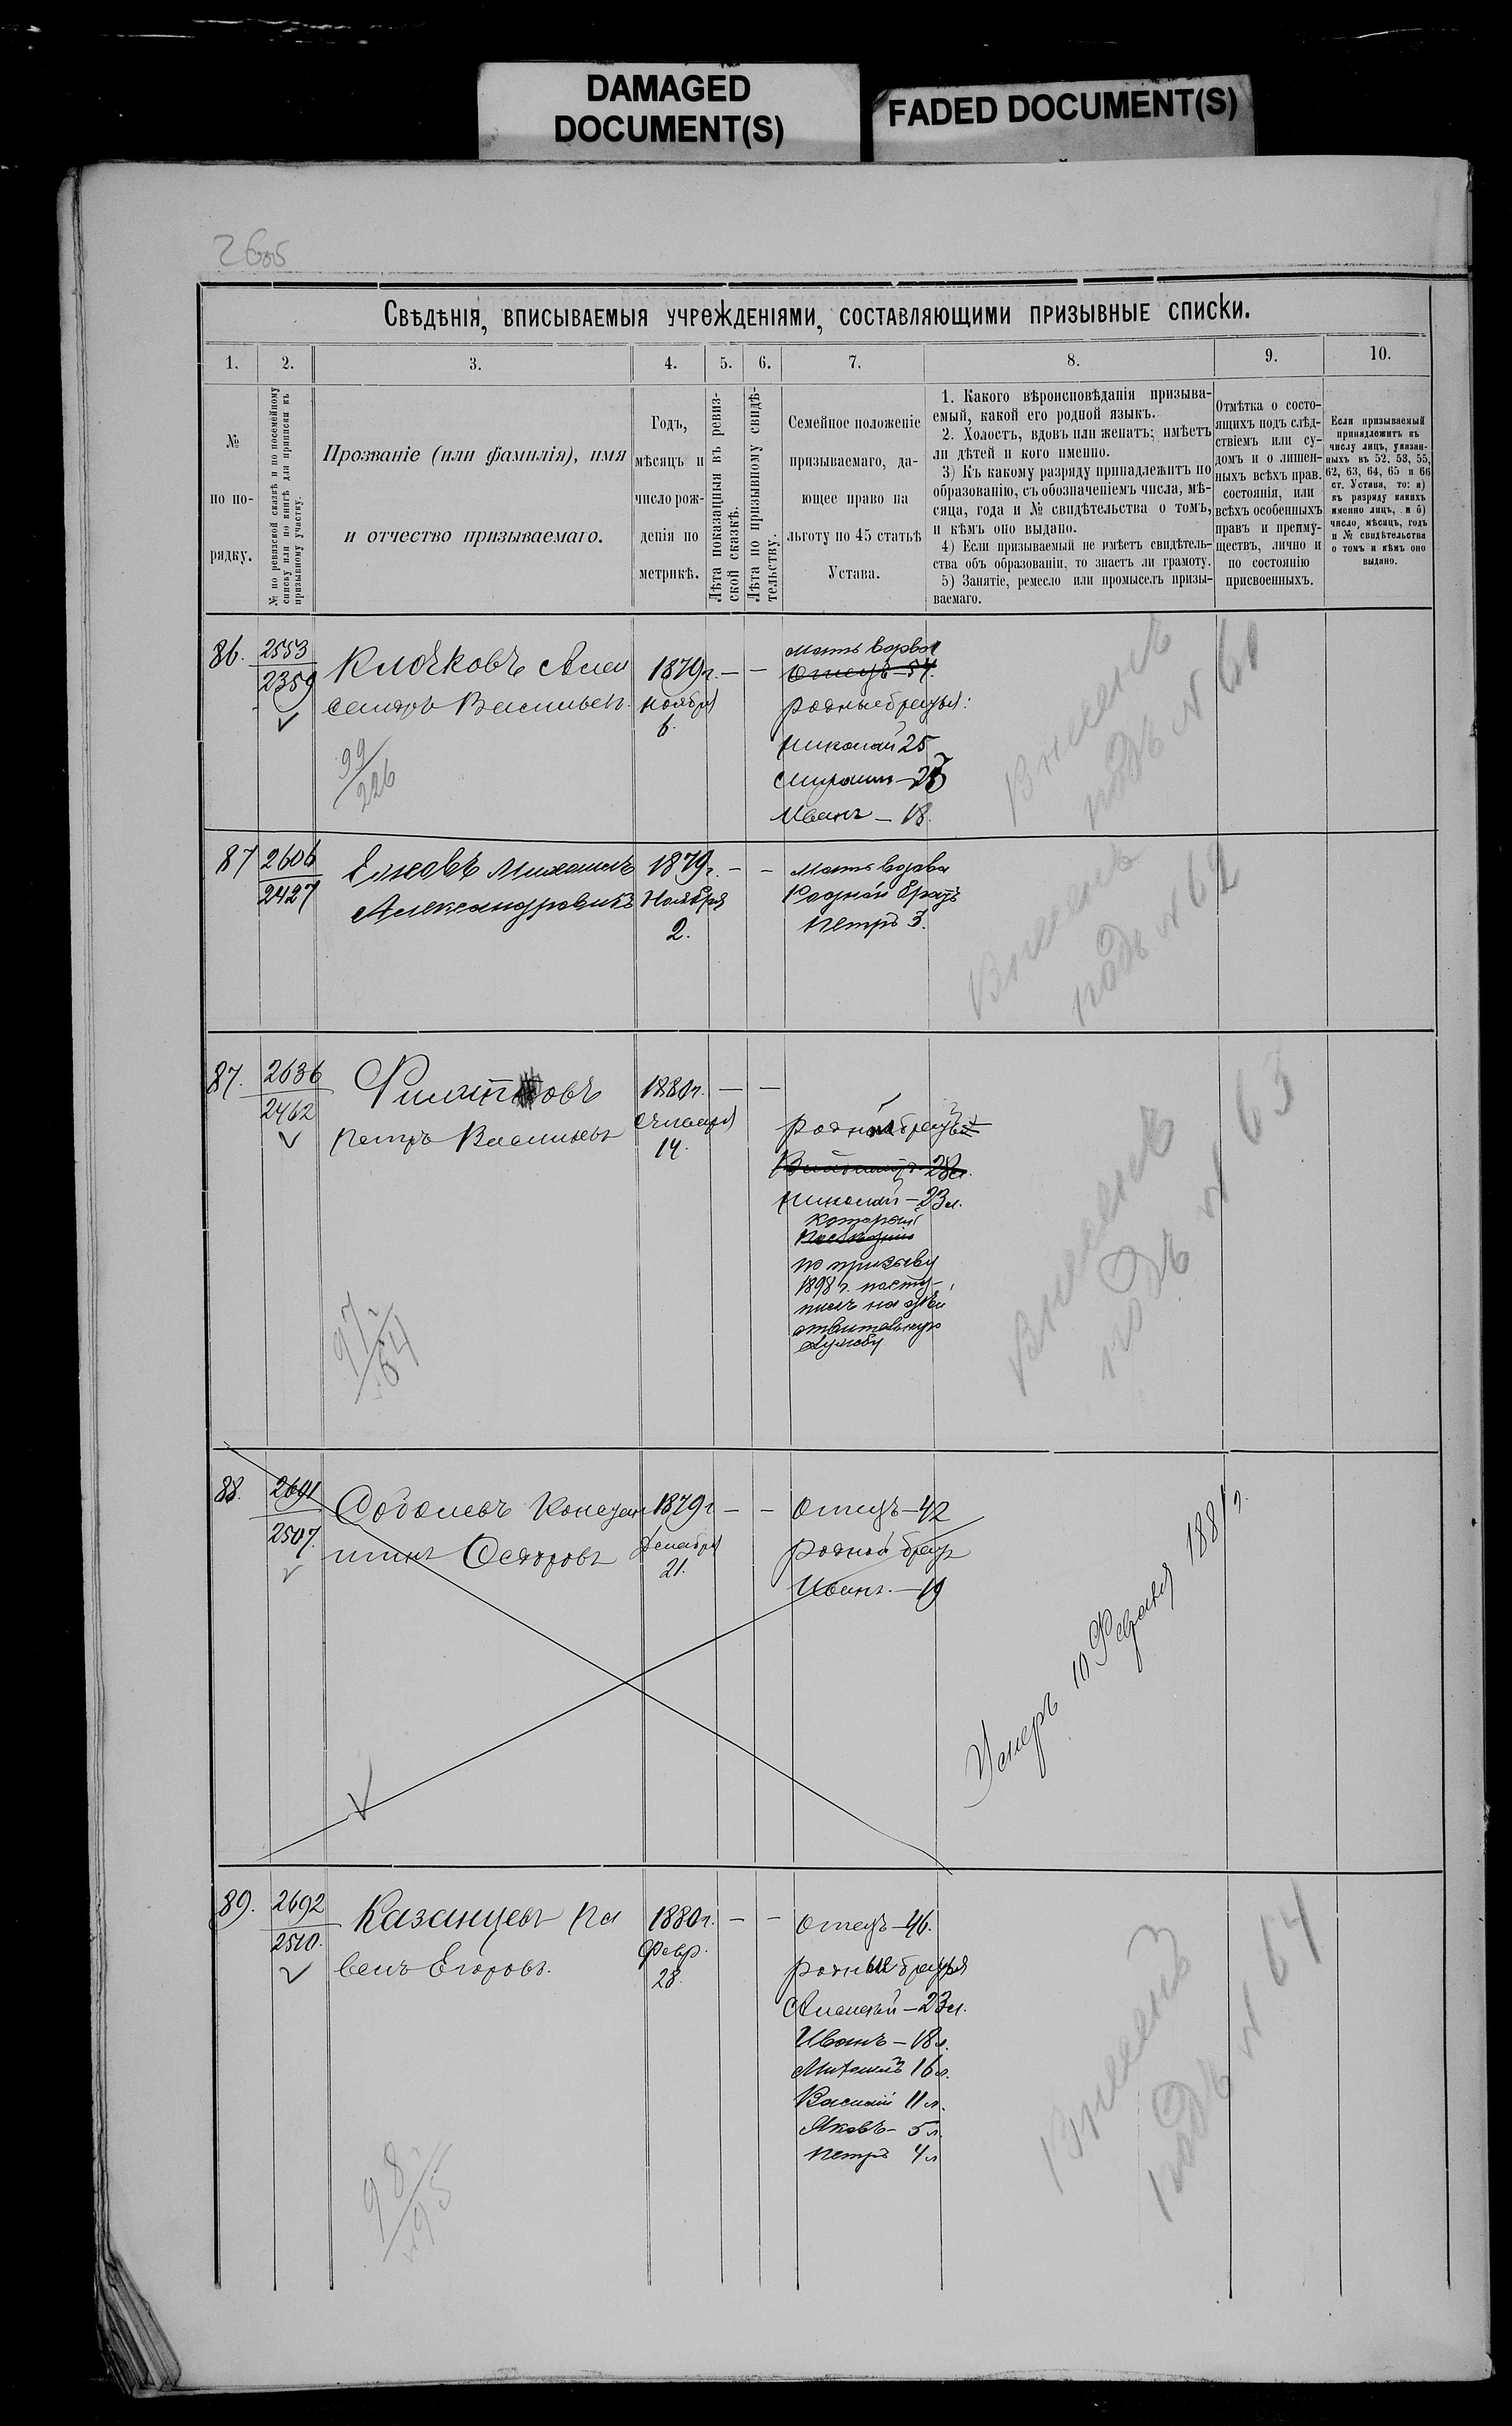 DAMAGED
DOCUMENT(S)
FADED DOCUMENT(S)
2605
Свѣдѣнія, вписываемыя учрежденіями, составляющими призывные списки.
1. 2. 3. 4. 5. 6. 7. 8. 9. 10.
№
по по-
рядку.
№ по ревизской сказкѣ и по посемейному
списку или по книгѣ для приписки къ
призывному участку.
Прозваніе (или фамилія), имя
и отчество призываемаго.
Годъ,
мѣсяцъ и
число рож-
денія по
метрикѣ.
Лѣта показанныя въ ревиз-
ской сказкѣ.
Лѣта по призывному свидѣ-
тельству.
Семейное положеніе
призываемаго, да-
ющее право на
льготу по 45 статьѣ
Устава.
1. Какого вѣроисповѣданія призыва-
емый, какой его родной языкъ.
2. Холостъ, вдовъ или женатъ; имѣетъ
ли дѣтей и кого именно.
3) Къ какому разряду принадлежитъ по
образованію, съ обозначеніемъ числа, мѣ-
сяца, года и № свидѣтельства о томъ,
и кѣмъ оно выдано.
4) Если призываемый не имѣетъ свидѣтель-
ства объ образованіи, то знаетъ ли грамоту.
5) Занятіе, ремесло или промыселъ призы-
ваемаго.
Отмѣтка о состо-
ящихъ подъ слѣд-
ствіемъ или су-
домъ и о лишен-
ныхъ всѣхъ прав.
состоянія, или
всѣхъ особенныхъ
правъ и преиму-
ществъ, лично и
по состоянію
присвоенныхъ.
Если призываемый
принадлежитъ къ
числу лицъ, указан-
ныхъ въ 52, 53, 55,
62, 63, 64, 65 и 66
ст. Устава, то: а)
къ разряду какихъ
именно лицъ, и б)
число, мѣсяцъ, годъ
и № свидѣтельства
о томъ и кѣмъ оно
выдано.
86. 2553
2359
Клочковъ Алек
сандръ Васильев.
99
226
1879г. — —
ноября
6.
Мать вдова
Отецъ—54.
родные братья:
Николай 25
Иванъ — 18.
Внесенъ
подъ № 61
87 2606
2427
Елховъ Михаилъ
Александровичъ
1879г. — —
Ноября
2.
Мать вдова
Родной братъ
Петръ 3.
Внесенъ
подъ № 62
87. 2636
2462
Петръ Васильевъ
97
64
1880г. — —
14.
родной братъ
Николай — 23 л.
который
по призыву
1898 г. посту-
пилъ на дѣй
ствительную
службу
Внесенъ
подъ № 63
88. 2691
2507.
Соболевъ Констан
тинъ Федоровъ
1879г — —
Декабря
21.
Отецъ—42
родной братъ
Иванъ.—19
Умеръ 10 Февраля 1881г.
89. 2692
2510.
Казанцевъ Па
велъ Егоровъ.
98
195
1880г. — —
Февр.
28.
Отецъ—46.
родные братья
Алексѣй—23 л.
Иванъ—18 л.
Михаилъ 16 л.
Василій 11 л.
Яковъ— 5 л.
Петръ 4 л
Внесенъ
подъ № 64